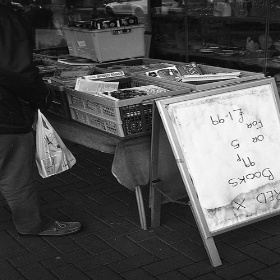 RED X
BOOKS
99p
OR 5
FOR £1.99